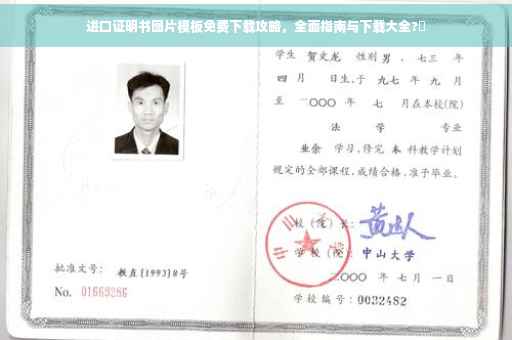 进口证明书图片模板免费下载攻略，全面指南与下载大全?
学生 贺文龙 性别 男 ．七三 年
四 月 日生，于 九七 年 九 月
至 二〇〇〇 年 七 月在本校(院)
法 学 专业
业余 学习，修完 本 科教学计划
规定的全部课程，成绩合格，准予毕业。
校（院）长：
学 校（院）：中山大学
二〇〇〇 年 七 月 一 日
学校编号：0032482
批准文号： 教直[1993]8号
No. 01669286